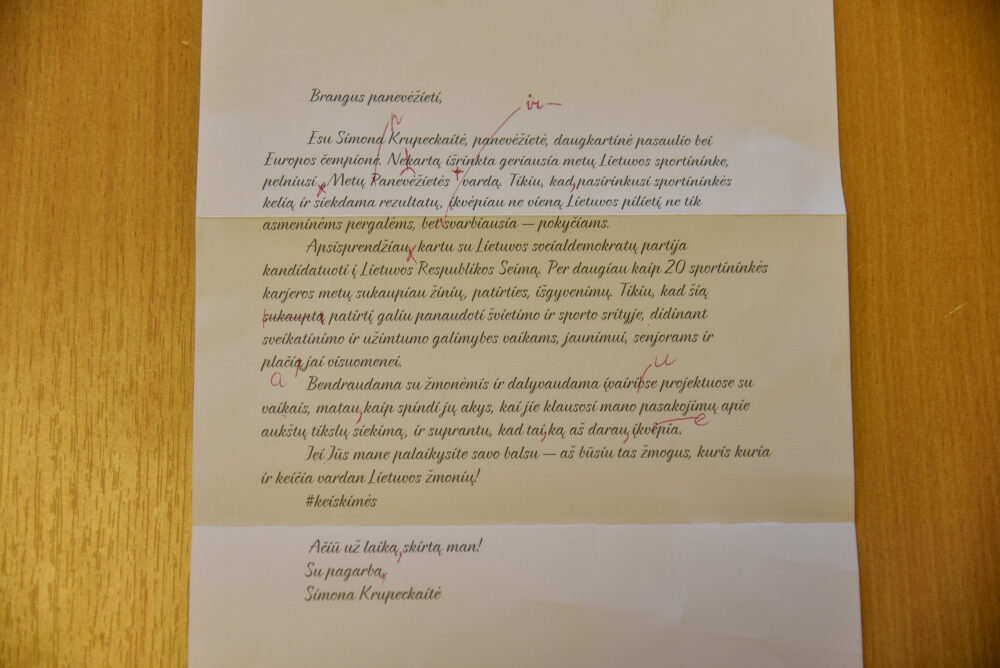 Brangus panevėžieti,
ir
p
Esu Simona Krupeckaitė, panevėžietė, daugkartinė pasaulio bei
Europos čempionė. Nekartą išrinkta geriausia metų Lietuvos sportininke,
pelniusi „Metų Panevėžietės“ vardą. Tikiu, kad pasirinkusi sportininkės
kelią ir siekdama rezultatų, įkvėpiau ne vieną Lietuvos pilietį ne tik
asmeninėms pergalėms, bet svarbiausia — pokyčiams.
Apsisprendžiau, kartu su Lietuvos socialdemokratų partija
kandidatuoti į Lietuvos Respublikos Seimą. Per daugiau kaip 20 sportininkės
karjeros metų sukaupiau žinių, patirties, išgyvenimų. Tikiu, kad šią
sukauptą patirtį galiu panaudoti švietimo ir sporto srityje, didinant
sveikatinimo ir užimtumo galimybes vaikams, jaunimui, senjorams ir
plačiąjai visuomenei.
a
u
Bendraudama su žmonėmis ir dalyvaudama įvairiose projektuose su
vaikais, matau, kaip spindi jų akys, kai jie klausosi mano pasakojimų apie
e
aukštų tikslų siekimą, ir suprantu, kad tai, ką aš darau, įkvėpia.
Jei Jūs mane palaikysite savo balsu — aš būsiu tas žmogus, kuris kuria
ir keičia vardan Lietuvos žmonių!
#keiskimės
Ačiū už laiką, skirtą man!
Su pagarba,
Simona Krupeckaitė